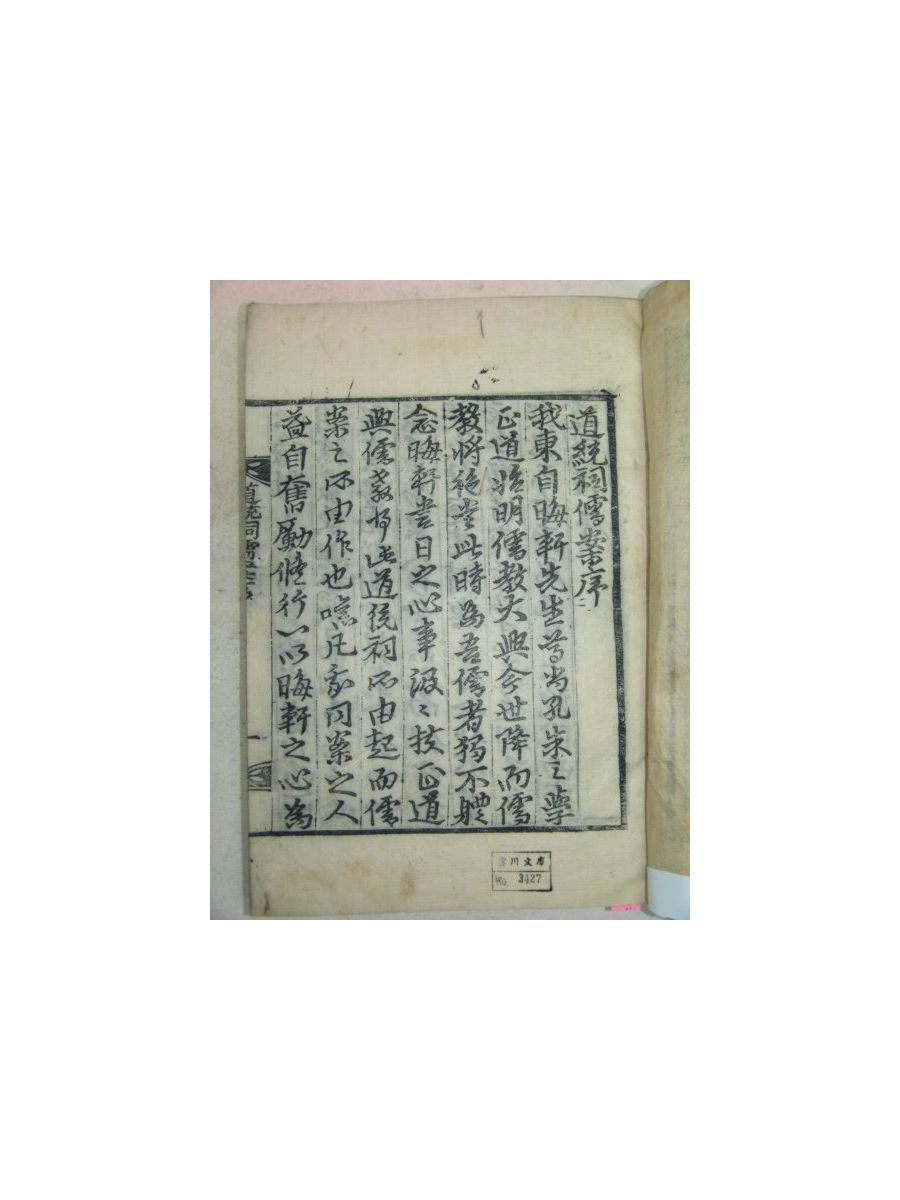 道統祠儒案序
我東自晦軒先生尊尚孔朱之學
正道始明儒教大興今世降而儒
教將絶當此時爲吾儒者獨不軆
念晦軒當日之心事汲〻扶正道
興儒教乎此道統祠所由起而儒
案之所由作也嗚凡我同案之人
益自奮勵修行以晦軒之心爲
道統祠儒案序
一
川文庫
No. 3427